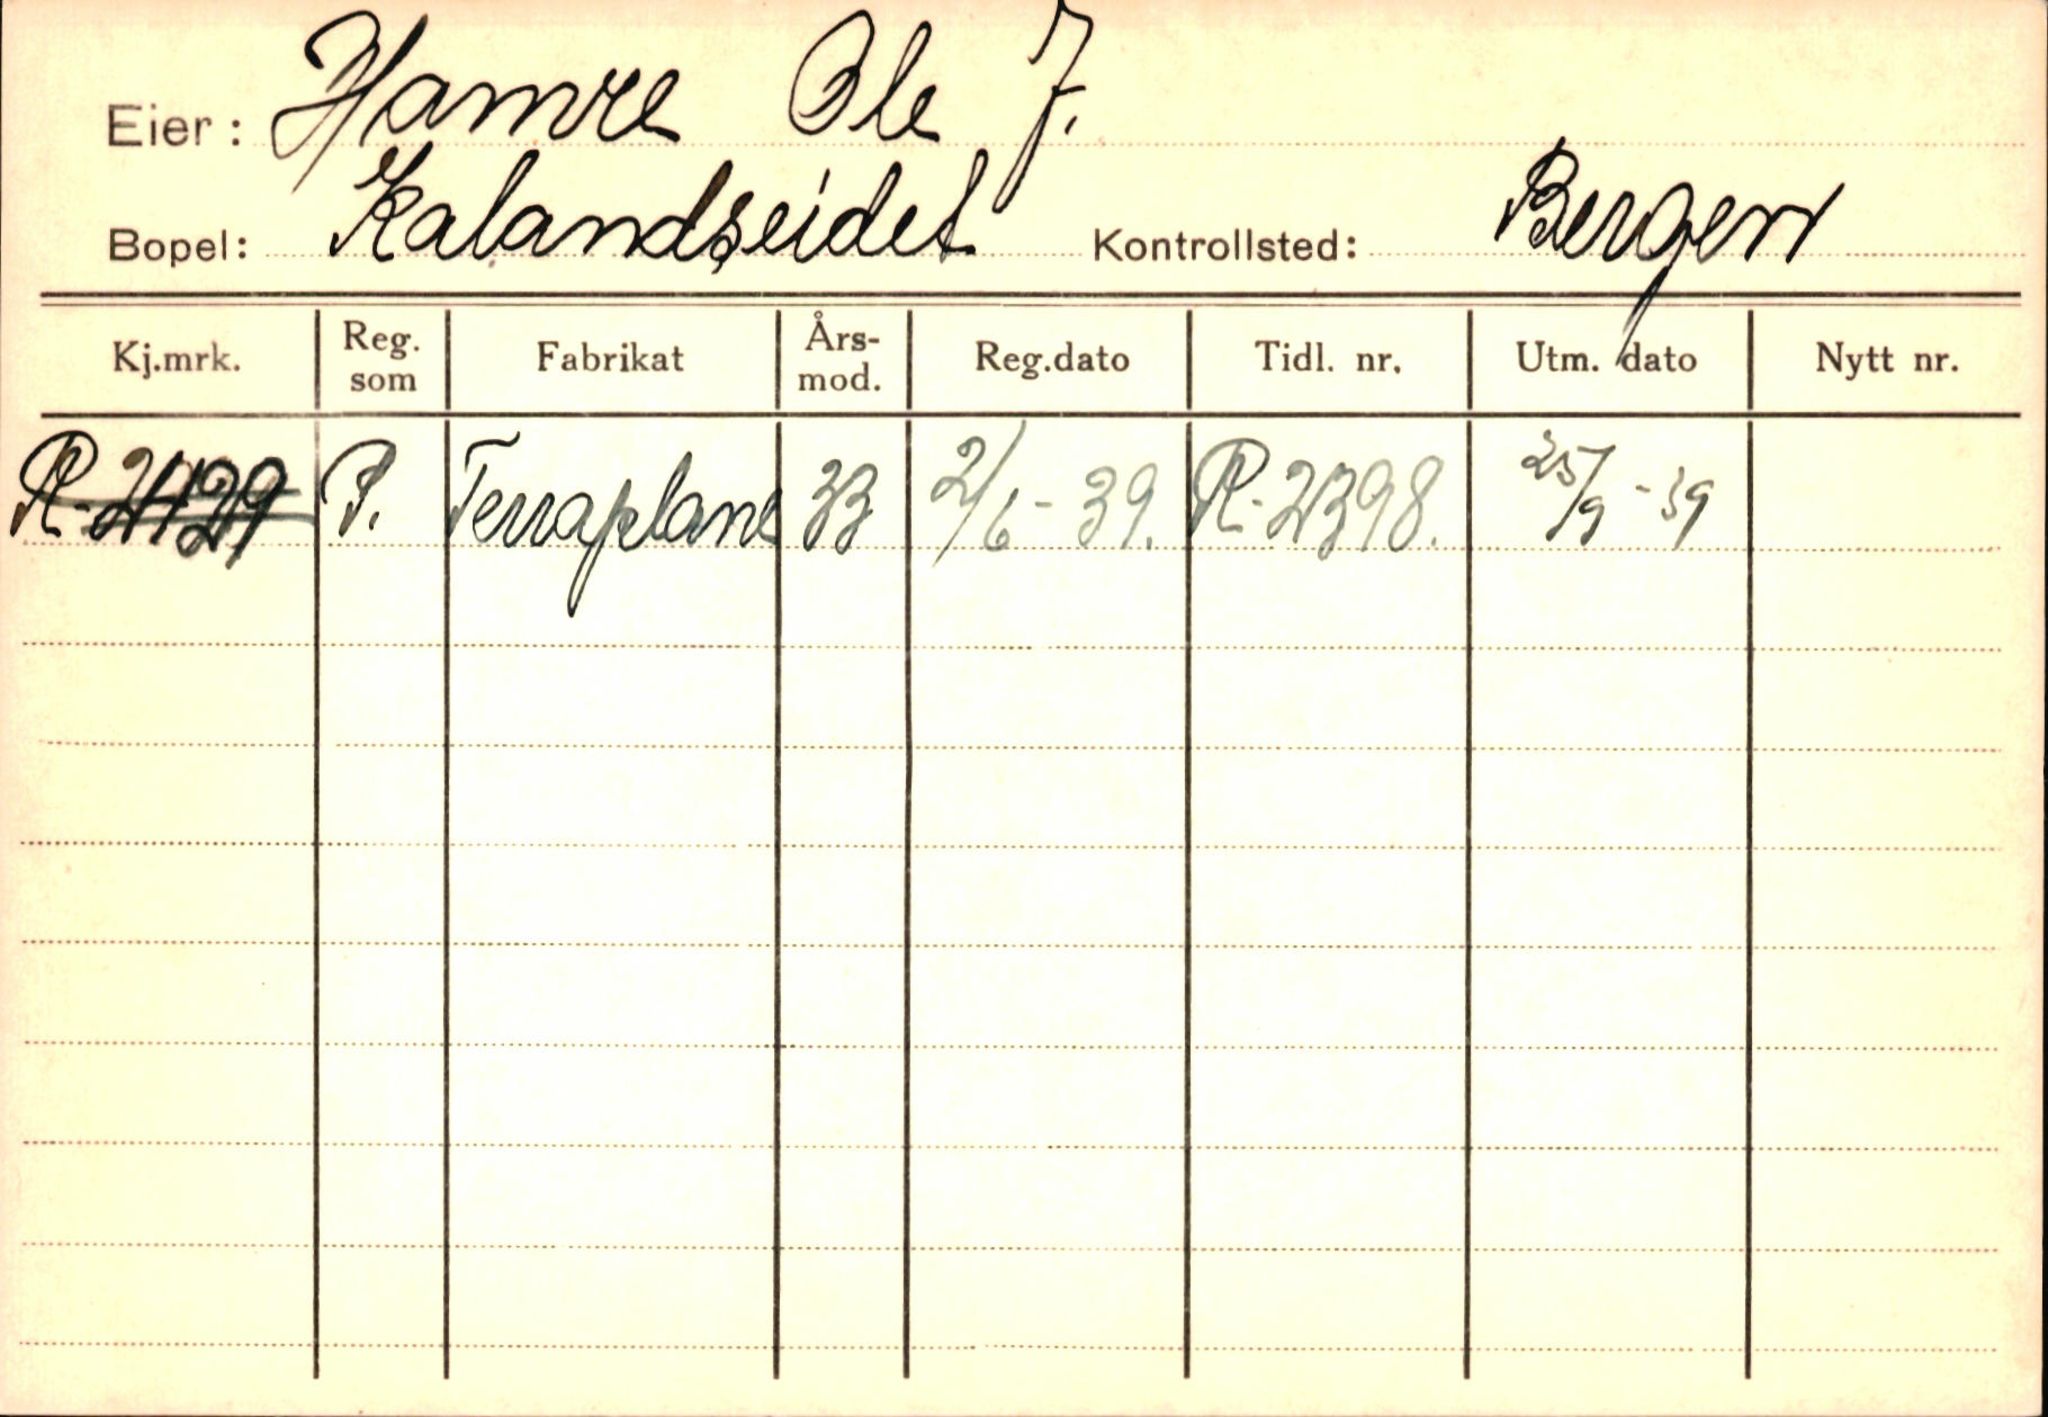 Eier: Hamre Ole J.
Bopel: Kalandseidet Kontrollsted: Bergen
Kj.mrk. Reg. som Fabrikat Års-mod. Reg.dato Tidl. nr. Utm. dato Nytt nr.
R-2429 P. Terraplane 33 2/6-39. R-2398. 25/9-39